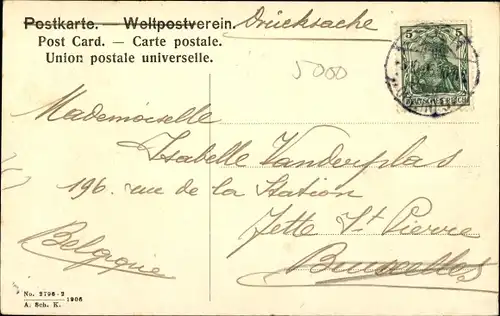 Postkarte. — Weltpostverein. Drucksache
Post Card. — Carte postale.
Union postale universelle.
5000
5 5
DEUTSCHES REICH
Mademoiselle
Isabelle Vanderplas
196. rue de la Station
Jette St Pierre
Bruxelles
Belgique
No. 2796-2
1906
A: Sch. K.